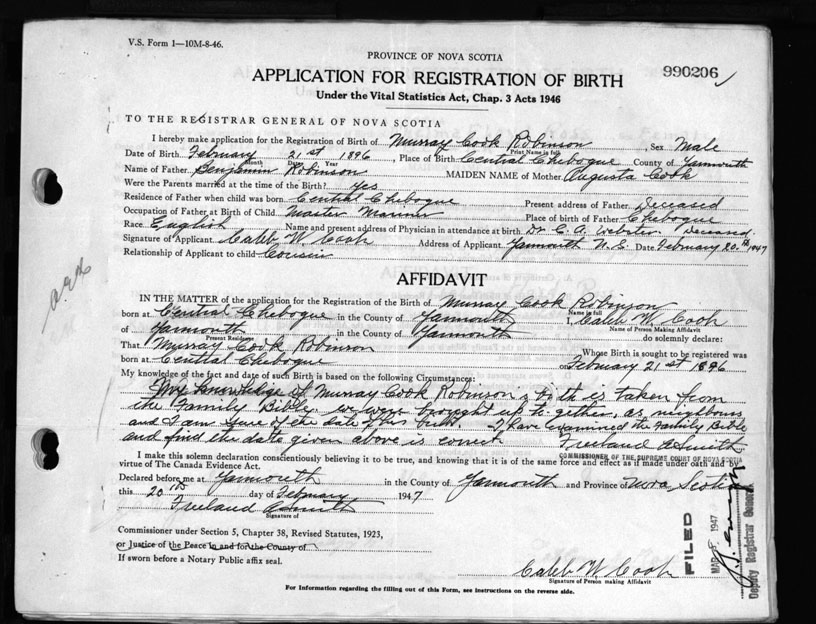 V.S. Form 1—10M-8-46.
PROVINCE OF NOVA SCOTIA
990206
APPLICATION FOR REGISTRATION OF BIRTH
Under the Vital Statistics Act, Chap. 3 Acts 1946
TO THE REGISTRAR GENERAL OF NOVA SCOTIA
I hereby make application for the Registration of Birth of Murray Cook Robinson, Sex Male
Print Name in full
Date of Birth February 21st 1896, Place of Birth Central Chebogue County of Yarmouth
Month Date Year
Name of Father Benjamin Robinson MAIDEN NAME of Mother Augusta Cook
Were the Parents married at the time of the Birth? yes
Residence of Father when child was born Central Chebogue Present address of Father Deceased
Occupation of Father at Birth of Child Master Mariner Place of birth of Father Chebogue
Race English Name and present address of Physician in attendance at birth Dr. C. A. Webster. Deceased.
Signature of Applicant Caleb W. Cook Address of Applicant Yarmouth N.S. Date February 20th 1947
Relationship of Applicant to child Cousin
AFFIDAVIT
IN THE MATTER of the application for the Registration of the Birth of Murray Cook Robinson
Name in full
born at Central Chebogue in the County of Yarmouth I, Caleb W. Cook
Name of Person making Affidavit
of Yarmouth in the County of Yarmouth do solemnly declare:
Present Residence
That Murray Cook Robinson Whose Birth is sought to be registered was
born at Central Chebogue on February 21st 1896
My knowledge of the fact and date of such Birth is based on the following Circumstances:
My knowledge of Murray Cook Robinson's birth is taken from
the Family Bible. we were brought up together, as neighbours
and I am sure of the date of his birth. I have examined the Family Bible
and find the date given above is correct Freeland A Smith
COMMISSIONER OF THE SUPREME COURT OF NOVA SCOTIA
I make this solemn declaration conscientiously believing it to be true, and knowing that it is of the same force and effect as if made under oath and by
virtue of The Canada Evidence Act.
Declared before me at Yarmouth in the County of Yarmouth and Province of Nova Scotia
this 20th day of February 1947
Freeland A Smith
Signature of
Commissioner under Section 5, Chapter 38, Revised Statutes, 1923,
or Justice of the Peace in and for the County of
If sworn before a Notary Public affix seal.
FILED
MAR 1947
Deputy Registrar General
Caleb W. Cook
Signature of Person making Affidavit
For Information regarding the filling out of this Form, see instructions on the reverse side.